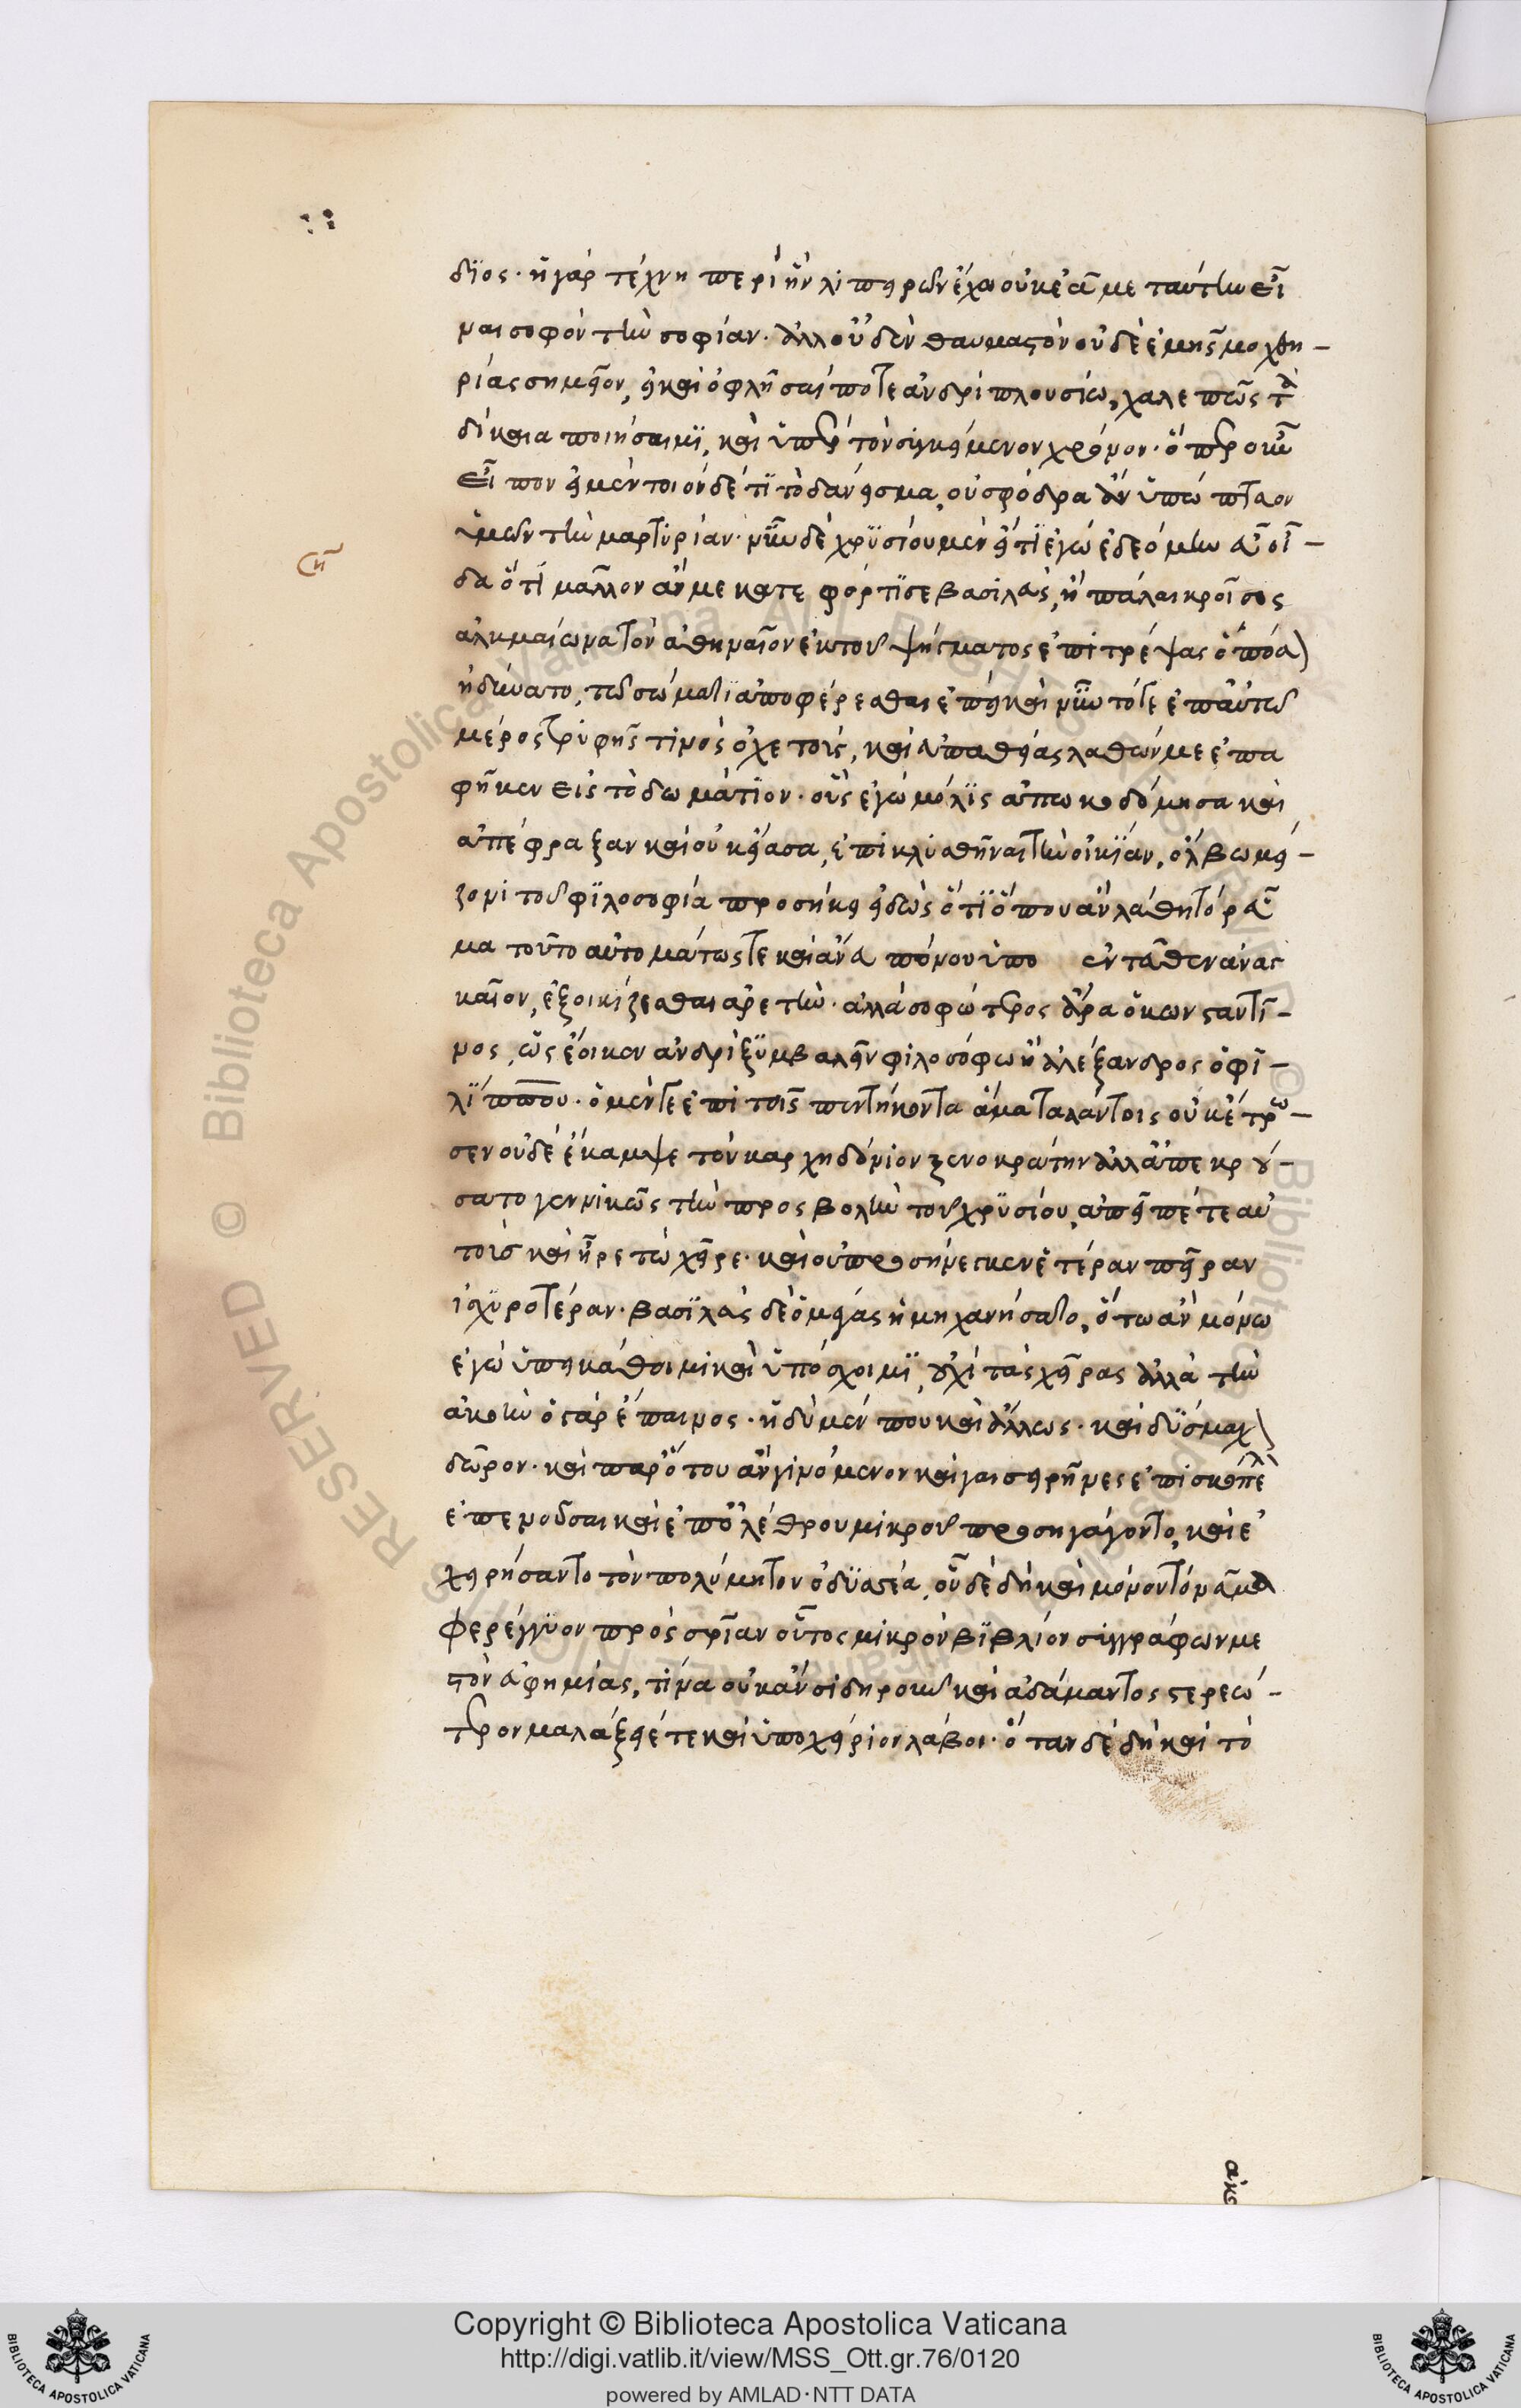 δϊος· ἡ γάρ τέχνη περὶ ἣν λιπαρῶν ἔχω οὐκ ἐᾶ με ταύτην εἶ
ναι σοφὸν τὴν σοφίαν. ἀλλ οὐδὲν θαυμαστὸν οὐδὲ ἐμῆς μοχθη-
ρίας σημεῖον, εἰ καὶ ὀφλῆσαί ποτε ἀνδρὶ πλουσίω, χαλεπῶς τὰ
δίκαια ποιήσαιμϊ, καὶ ὑπὲρ τὸν συγκείμενον χρόνον· ὅπερ οὖν
εἶπον εἰ μὲν τοιόνδέ τϊ τὸ δάνεισμα, οὐ σφόδρα ἂν ὑπώπτευον
ὑμῶν τὴν μαρτυρίαν· νῦν δὲ χρϋσίου μὲν εἴ τϊ ἐγὼ ἐδεόμην εὖ οἶ-
δα ὅτι μᾶλλον ἄν με κατεφόρτϊσε βασιλεὺς, ἢ πάλαι κροῖσος
ἀλκμαίωνα τὸν ἀθηναῖον ἐκ τοῦ ψήγματος ἐπιτρέψας ὁπόσα
ἠδύνατο, τῶ σώματϊ ἀποφέρεσθαι ἐπεὶ καὶ νῦν τότε ἐπ αὐτῶ
μέρος τρυφῆς τινὸς ὀχετοὺς, καὶ εὐπαθείας λαθών με ἐπα
φῆκεν εἰς τὸ δωμάτιον· οὓς ἐγὼ μόλϊς ἀπωκοδόμησα καὶ
ἀπέφραξαν καὶ οὐκ εἴασα, ἐπικλυσθῆναι τὴν οἰκϊάν, ὄλβω μεί-
ζονι τοῦ φϊλοσοφία προσήκει εἰδὼς ὅτϊ ὅπου ἂν λάθη τὸ ῥεῦ
μα τοῦτο αὐτομάτως τε καὶ ἄνευ πόνου ὑπο ἐνταῦθεν ἀναγ
καῖον, ἐξοικίζεσθαι ἀρετὴν· ἀλλὰ σοφώτερος ἄρα ὁ κωνσταντῖ-
νος, ὡς ἔοικεν ἀνδρὶ ξϋμβαλεῖν φιλοσόφω ἢ ἀλέξανδρος ὁ φι-
λΐππου· ὁ μέν τε ἐπὶ τοῖς πεντήκοντα ἅμα ταλάντοις οὐκ ἔτρω-
σεν οὐδὲ ἔκαμψε τὸν καρχηδόνιον ξενοκράτην ἀλλ ἀπεκρού-
σατο γεννικῶς τὴν προσβολὴν τοῦ χρϋσίου, ἀπεῖπέ τε αὐ
τοῖσ καὶ ἧρε τὼ χεῖρε· καὶ οὐ προσήνεγκεν ἑτέραν πεῖραν
ἰσχϋροτέραν· βασϊλεὺς δὲ ὁ μείας ἠμηχανήσατο, ὅτω ἂν μόνω
ἐγὼ ὑπεικάθοιμι καὶ ὑπόσχοιμϊ, οὐχὶ τὰς χεῖρας ἀλλὰ τὴν
ἀκοὴν ὁ γὰρ ἔπαινος· ἡδὺ μέν που καὶ ἄλλως· καὶ δϋσμαχ
δῶρον· καὶ παρ ὅτου ἂν γινόμενον καὶ γαι σειρῆνες ἐπισκοπέλ
ἐπενοῦσαι καὶ ἐπ ὀλέθρου μικροῦ προσηγάγοντο, καὶ ἐ
χειρήσαντο τὸν πολύμητον ὀδϋσσέα, οὗ δὲ δὴ καὶ μόνον τόναμα
φερέγγϋον πρὸς σρῖαν οὗτος μικρὸν βϊβλίον συγγράφων με
τὸν εὐφημίας, τίνα οὐκ ἂν σιδηροῦν καὶ ἀδάμαντος στερεώ-
τερον μαλάξειέ τε καὶ ὑποχείριον λάβοι· ὅταν δὲ δὴ καὶ τὸ
Copyright © Biblioteca Apostolica Vaticana
http://digi.vatlib.it/view/MSS_Ott.gr.76/0120
powered by AMLAD·NTT DATA